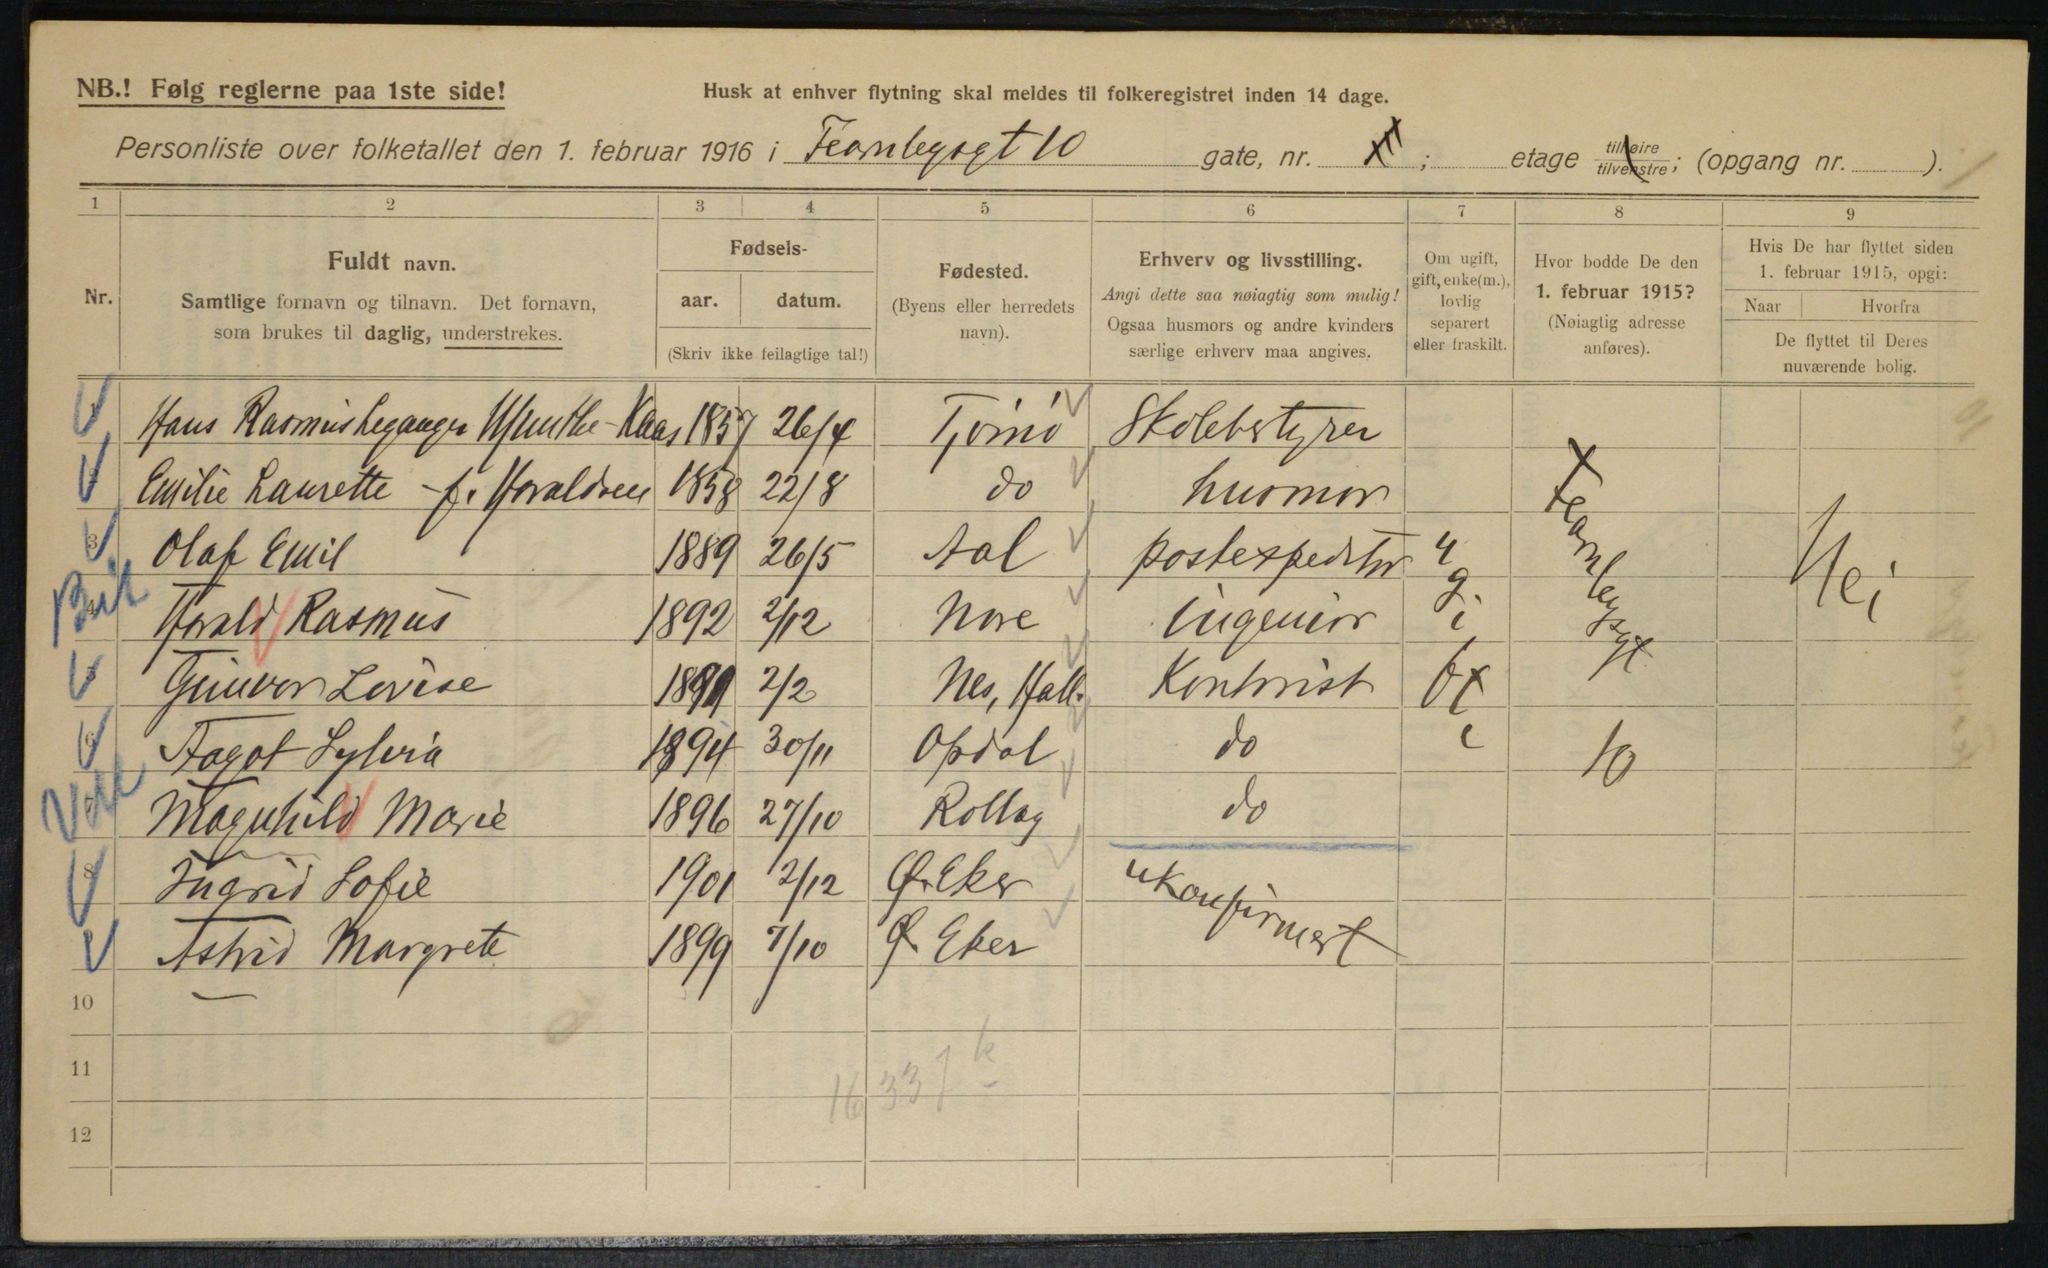 NB.! Følg reglerne paa 1ste side!
Husk at enhver flytning skal meldes til folkeregistret inden 14 dage.
Personliste over folketallet den 1. februar 1916 i Fearnleysgt 10 gate, nr. ; etage tilhøire tilvenstre; (opgang nr. ).
1 2 3 4 5 6 7 8 9
Nr.
Fuldt navn.
Samtlige fornavn og tilnavn. Det fornavn,
som brukes til daglig, understrekes.
Fødsels-
aar. datum.
(Skriv ikke feilagtige tal!)
Fødested.
(Byens eller herredets
navn).
Erhverv og livsstilling.
Angi dette saa nøiagtig som mulig!
Ogsaa husmors og andre kvinders
særlige erhverv maa angives.
Om ugift,
gift, enke(m.),
lovlig
separert
eller fraskilt.
Hvor bodde De den
1. februar 1915?
(Nøiagtig adresse
anføres).
Hvis De har flyttet siden
1. februar 1915, opgi:
Naar Hvorfra
De flyttet til Deres
nuværende bolig.
Hans Rasmus Leganger Munthe-Kaas 1857 26/4 Tjømø Skolebestyrer
Emilie Laurette f. Haraldsen 1858 22/8 do husmor
3 Olaf Emil 1889 26/5 Aal postexpeditør
4 Harald Rasmus 1892 2/12 Nore ingeniør
5 Gunvor Lovise 1891 2/2 Nes, Hall. Kontorist
6 Aagot Sylvia 1894 30/11 Opdal do
Magnhild Marie 1896 27/10 Rollag do
8 Ingrid Sofie 1901 2/12 Ø. Eker ukonfirmert
Astrid Margrete 1899 7/10 Ø. Eker
ugift
Fearnleysgt
10
Nei
10
11
12
16337 k